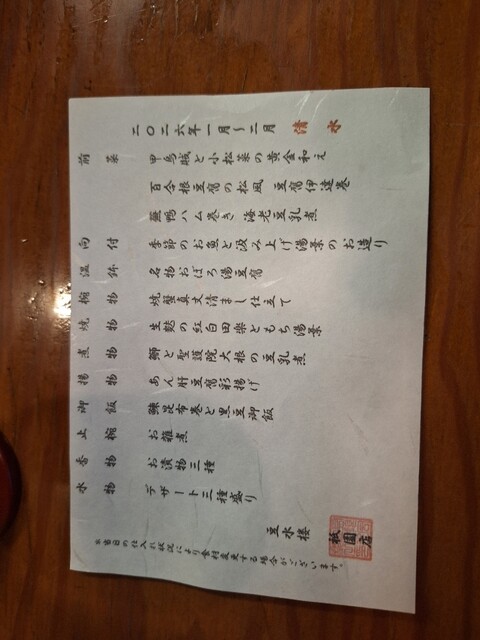 二〇二六年一月～二月 清水
前菜 甲烏賊と小松菜の黄金和え
百合根豆腐の松風 豆腐伊達巻
蕪鴨ハム巻き 海老豆乳煮
向付 季節のお魚と汲み上げ湯葉のお造り
温鉢 名物おぼろ湯豆腐
椀物 焼蟹真丈清まし仕立て
焼物 生麩の紅白田楽ともち湯葉
煮物 鰤と聖護院大根の豆乳煮
揚物 あん肝豆腐彩揚げ
御飯 鰊昆布巻と黒豆御飯
止椀 お雑煮
香物 お漬物三種
水物 デザート三種盛り
豆水楼 祇園店
※当日の仕入れ状況により食材変更する場合がございます。